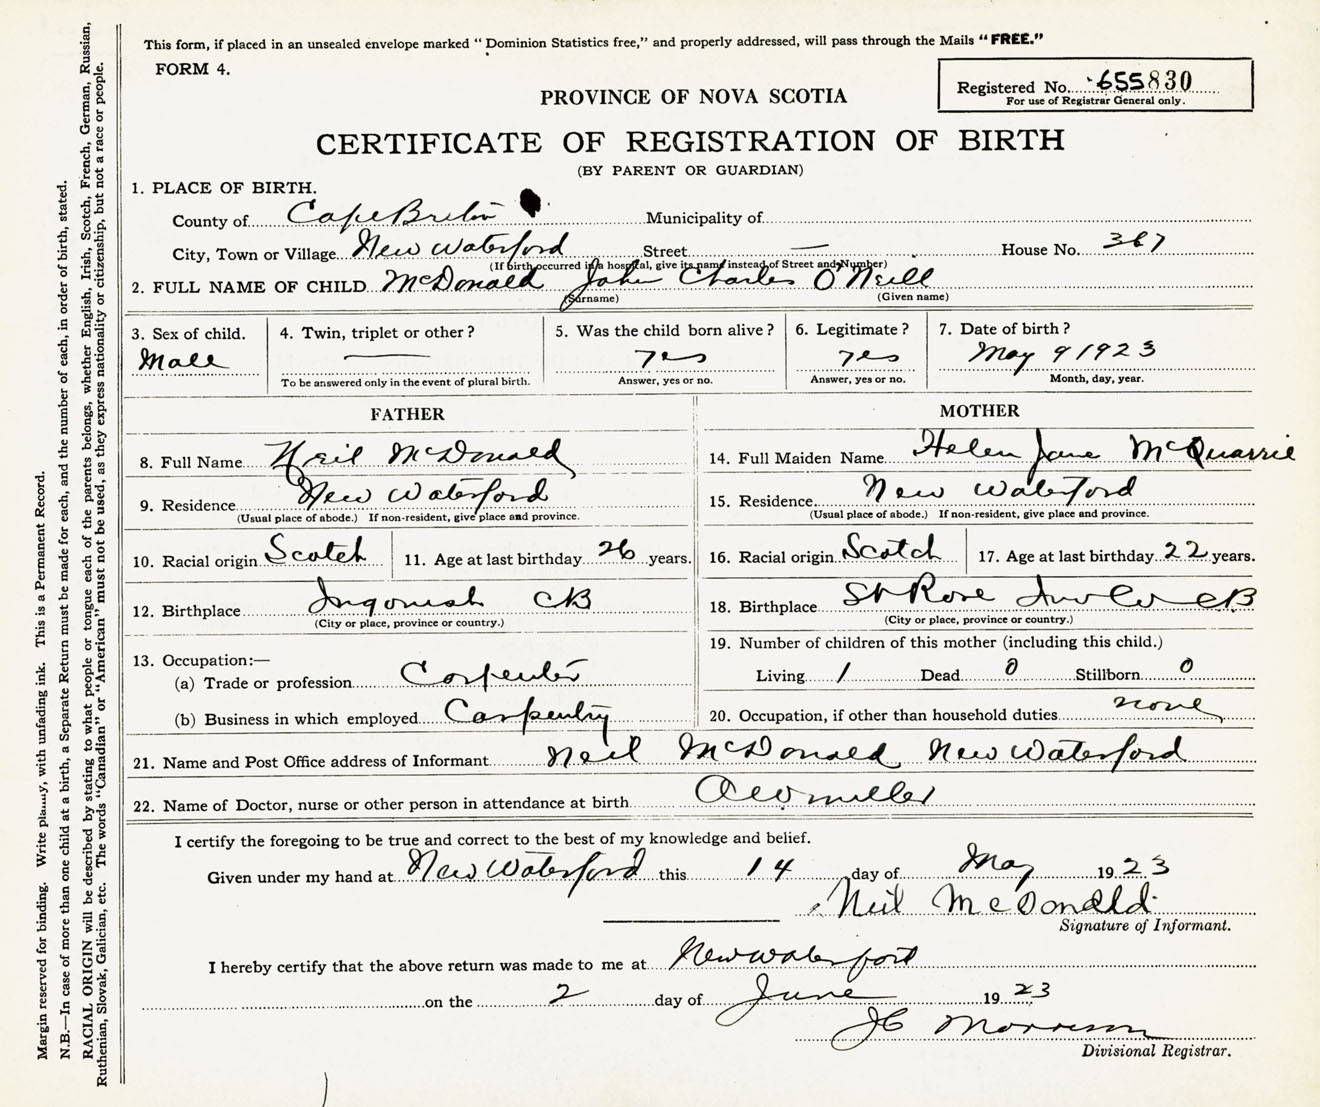 This form, if placed in an unsealed envelope marked “ Dominion Statistics free,” and properly addressed, will pass through the Mails “ FREE.”
FORM 4.
Registered No. 655830
For use of Registrar General only.
PROVINCE OF NOVA SCOTIA
CERTIFICATE OF REGISTRATION OF BIRTH
(BY PARENT OR GUARDIAN)
1. PLACE OF BIRTH.
County of Cape Breton Municipality of
City, Town or Village New Waterford Street — House No. 367
(If birth occurred in a hospital, give its name instead of Street and Number)
2. FULL NAME OF CHILD McDonald John Charles O'Neill
(Surname) (Given name)
3. Sex of child. 4. Twin, triplet or other ? 5. Was the child born alive ? 6. Legitimate ? 7. Date of birth ?
Male — yes yes May 9 1923
To be answered only in the event of plural birth. Answer, yes or no. Answer, yes or no. Month, day, year.
FATHER MOTHER
8. Full Name Neil McDonald 14. Full Maiden Name Helen Jane McQuarrie
9. Residence New Waterford 15. Residence New Waterford
(Usual place of abode.) If non-resident, give place and province. (Usual place of abode.) If non-resident, give place and province.
10. Racial origin Scotch 11. Age at last birthday 26 years. 16. Racial origin Scotch 17. Age at last birthday 22 years.
12. Birthplace Ingonish CB 18. Birthplace St Rose CB
(City or place, province or country.) (City or place, province or country.)
19. Number of children of this mother (including this child.)
13. Occupation:—
(a) Trade or profession Carpenter Living 1 Dead 0 Stillborn 0
(b) Business in which employed Carpentry 20. Occupation, if other than household duties none
21. Name and Post Office address of Informant Neil McDonald New Waterford
22. Name of Doctor, nurse or other person in attendance at birth Miller
I certify the foregoing to be true and correct to the best of my knowledge and belief.
Given under my hand at New Waterford this 14 day of May 1923
Neil McDonald
Signature of Informant.
I hereby certify that the above return was made to me at New Waterford
on the 2 day of June 1923
JC Morrison
Divisional Registrar.
Margin reserved for binding. Write plainly, with unfading ink. This is a Permanent Record.
N.B.—In case of more than one child at a birth, a Separate Return must be made for each, and the number of each, in order of birth, stated.
RACIAL ORIGIN will be described by stating to what people or tongue each of the parents belongs, whether English, Irish, Scotch, French, German, Russian,
Ruthenian, Slovak, Galician, etc. The words “Canadian” or “American” must not be used, as they express nationality or citizenship, but not a race or people.